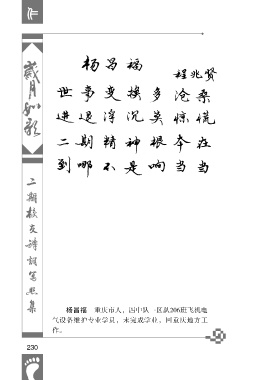 作
岁月如歌
二期校友诗词写照集
杨昌福
程兆贤
世事变换多沧桑
进退浮沉莫惊慌
二期精神根本在
到哪不是响当当
杨昌福 重庆市人，四中队一区队206班飞机电
气设备维护专业学员，未完成学业，回重庆地方工
作。
230